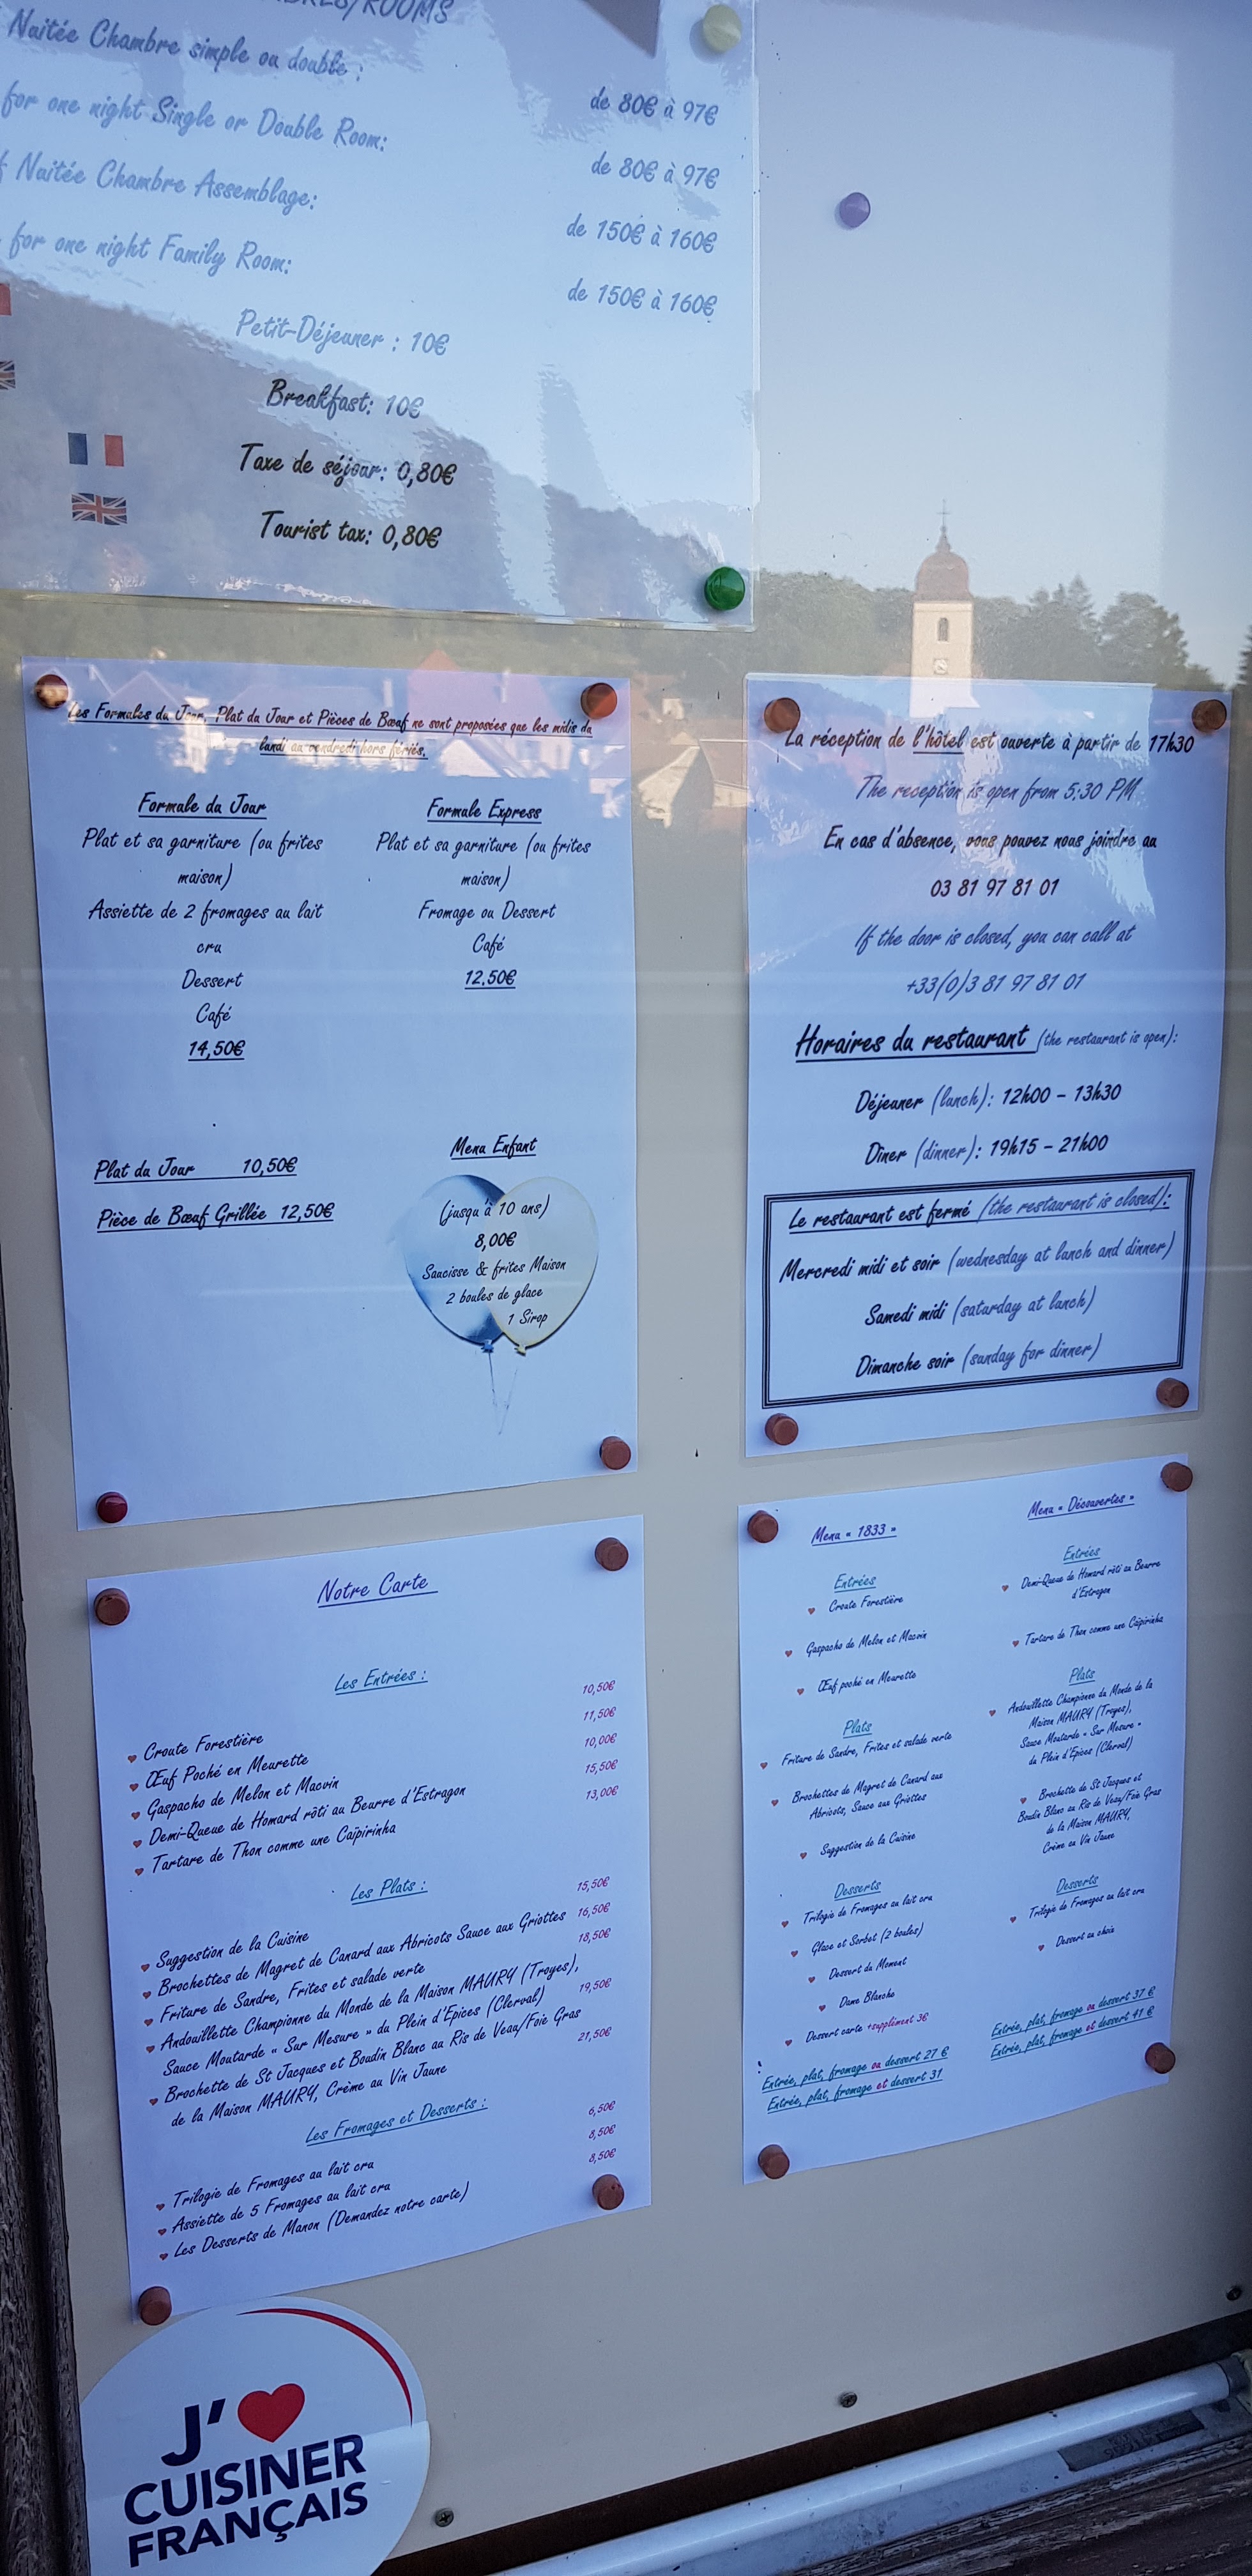 /ROOMS
Nuitée Chambre simple ou double :
de 80€ à 97€
for one night Single or Double Room:
de 80€ à 97€
Nuitée Chambre Assemblage:
de 150€ à 160€
for one night Family Room:
de 150€ à 160€
Petit-Déjeuner : 10€
Breakfast: 10€
Taxe de séjour: 0,80€
Tourist tax: 0,80€
Les Formules du Jour, Plat du Jour et Pièces de Bœuf ne sont proposées que les midis du
lundi au vendredi hors fériés.
Formule du Jour
Plat et sa garniture (ou frites
maison)
Assiette de 2 fromages au lait
cru
Dessert
Café
14,50€
Formule Express
Plat et sa garniture (ou frites
maison)
Fromage ou Dessert
Café
12,50€
Plat du Jour 10,50€
Pièce de Bœuf Grillée 12,50€
Menu Enfant
(jusqu'à 10 ans)
8,00€
Saucisse & frites Maison
2 boules de glace
1 Sirop
La réception de l'hôtel est ouverte à partir de 17h30
The reception is open from 5:30 PM
En cas d'absence, vous pouvez nous joindre au
03 81 97 81 01
If the door is closed, you can call at
+33(0)3 81 97 81 01
Horaires du restaurant (the restaurant is open):
Déjeuner (lunch): 12h00 – 13h30
Dîner (dinner): 19h15 – 21h00
Le restaurant est fermé (the restaurant is closed):
Mercredi midi et soir (wednesday at lunch and dinner)
Samedi midi (saturday at lunch)
Dimanche soir (sunday for dinner)
Notre Carte
Les Entrées :
10,50€
11,50€
10,00€
15,50€
13,00€
Croute Forestière
Œuf Poché en Meurette
Gaspacho de Melon et Macvin
Demi-Queue de Homard rôti au Beurre d'Estragon
Tartare de Thon comme une Caïpirinha
Les Plats :
15,50€
16,50€
18,50€
19,50€
21,50€
Suggestion de la Cuisine
Brochettes de Magret de Canard aux Abricots Sauce aux Griottes
Friture de Sandre, Frites et salade verte
Andouillette Championne du Monde de la Maison MAURY (Troyes),
Sauce Moutarde « Sur Mesure » du Plein d'Epices (Clerval)
Brochette de St Jacques et Boudin Blanc au Ris de Veau/Foie Gras
de la Maison MAURY, Crème au Vin Jaune
Les Fromages et Desserts :
6,50€
8,50€
8,50€
Trilogie de Fromages au lait cru
Assiette de 5 Fromages au lait cru
Les Desserts de Manon (Demandez notre carte)
Menu « 1833 »
Entrées
Croute Forestière
Gaspacho de Melon et Macvin
Œuf poché en Meurette
Plats
Friture de Sandre, Frites et salade verte
Brochettes de Magret de Canard aux
Abricots, Sauce aux Griottes
Suggestion de la Cuisine
Desserts
Trilogie de Fromages au lait cru
Glace et Sorbet (2 boules)
Dessert du Moment
Dame Blanche
Dessert carte +supplément 3€
Entrée, plat, fromage ou dessert 27 €
Entrée, plat, fromage et dessert 31
Menu « Découvertes »
Entrées
Demi-Queue de Homard rôti au Beurre
d'Estragon
Tartare de Thon comme une Caïpirinha
Plats
Andouillette Championne du Monde de la
Maison MAURY (Troyes),
Sauce Moutarde « Sur Mesure »
du Plein d'Epices (Clerval)
Brochette de St Jacques et
Boudin Blanc au Ris de Veau/Foie Gras
de la Maison MAURY,
Crème au Vin Jaune
Desserts
Trilogie de Fromages au lait cru
Dessert au choix
Entrée, plat, fromage ou dessert 37 €
Entrée, plat, fromage et dessert 41 €
J'
CUISINER
FRANÇAIS